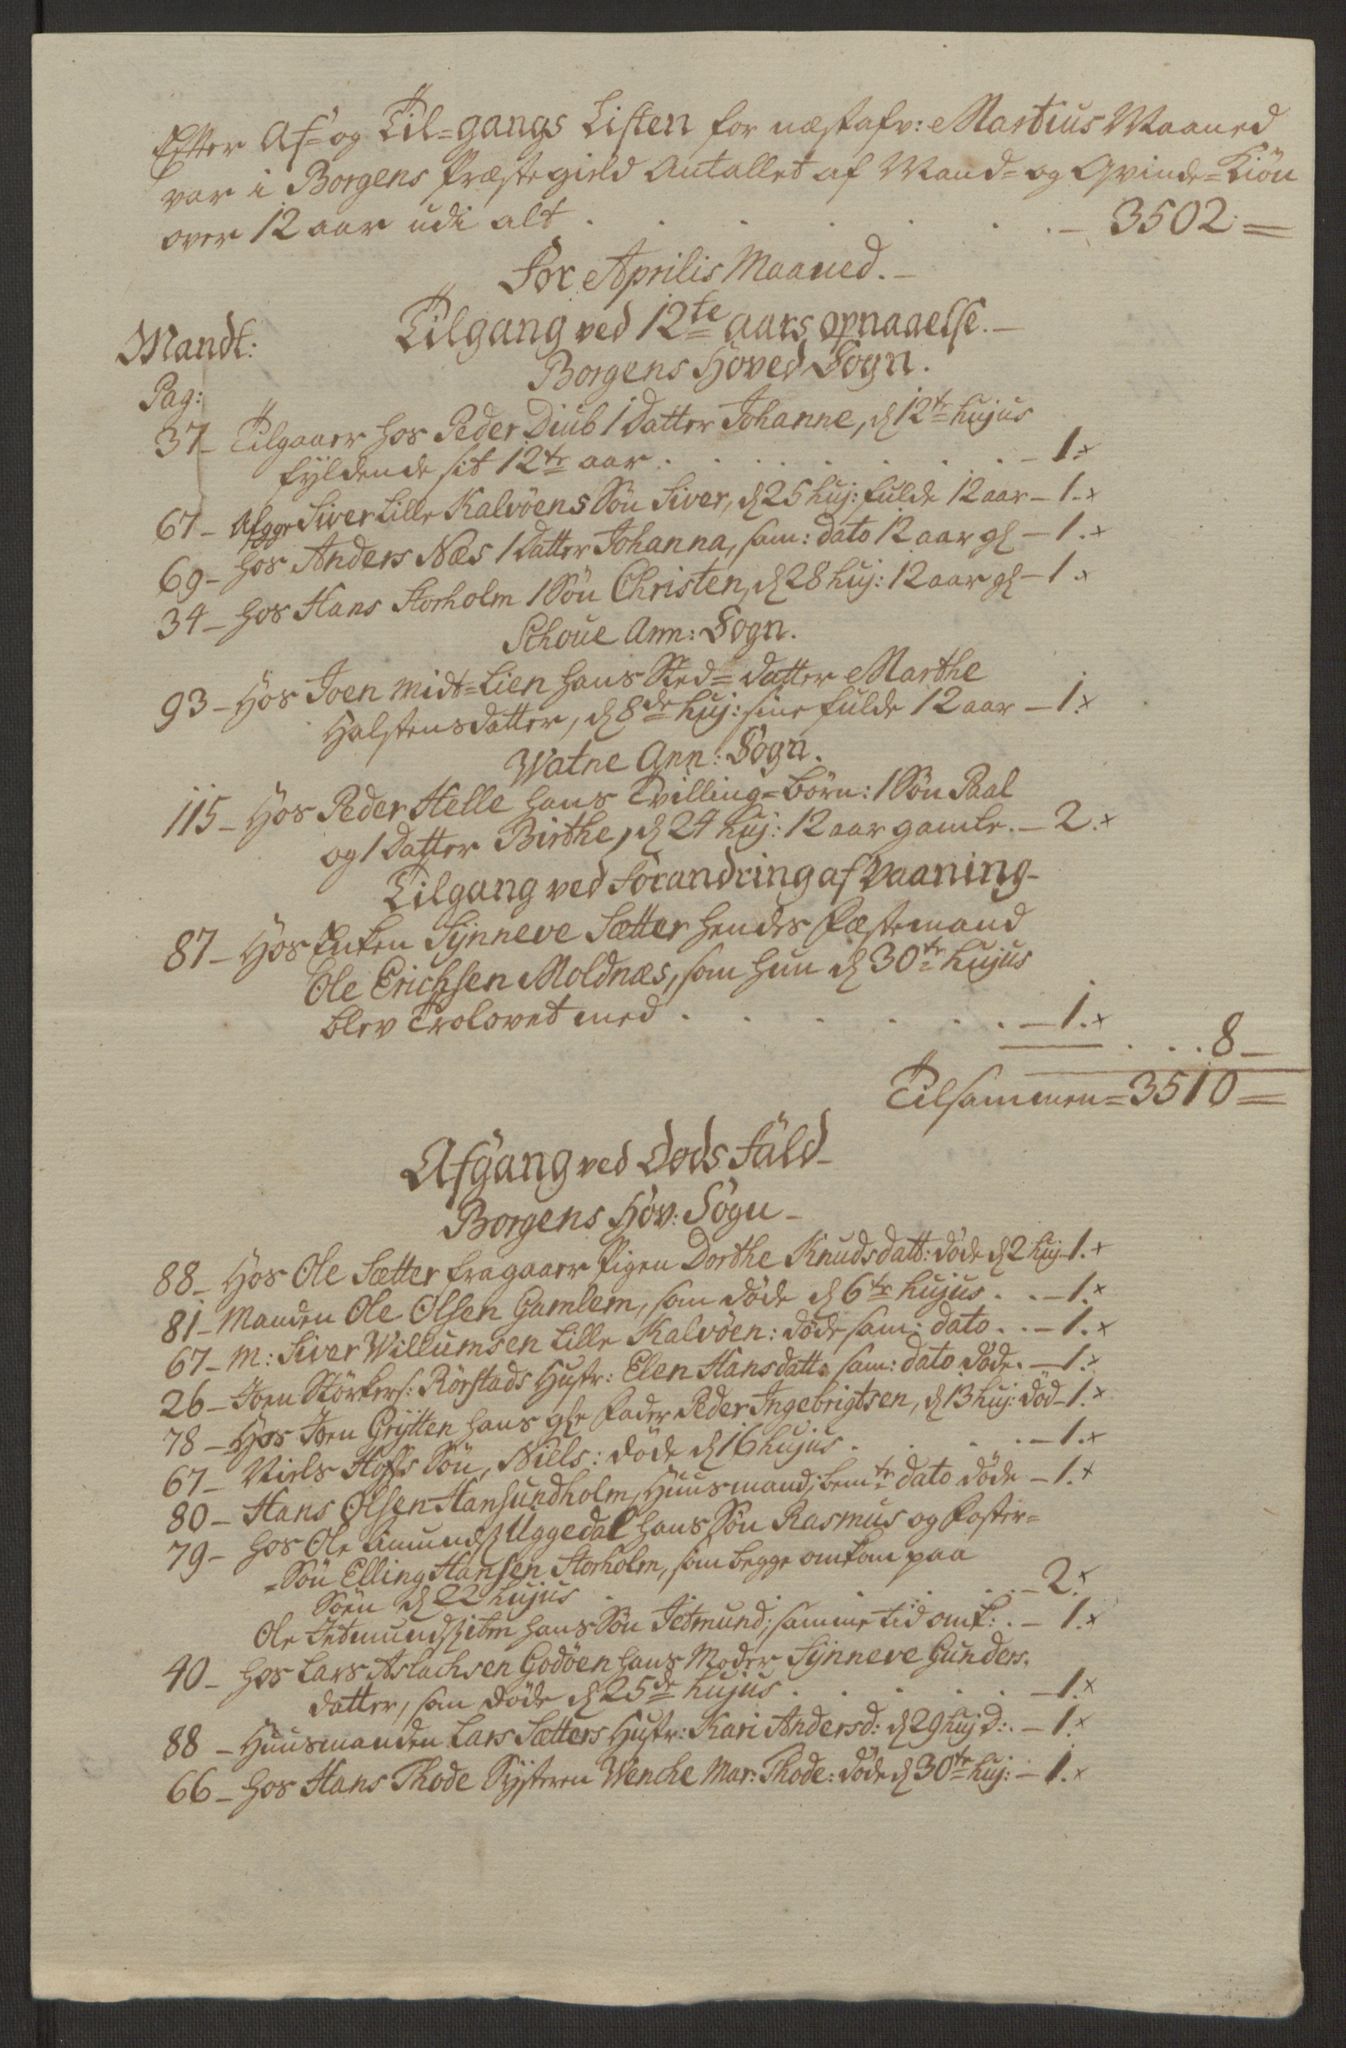 Efter Af= og Til=gangs Listen for næstafv: Martius Maaned
var i Borgens Præstegield Antallet af Mand= og Qvinde=Kiön
over 12 aar udi alt . . . . . . — 3502 =
For Aprilis Maaned. —
Tilgang ved 12te aars opnaaelse. —
Mandt:
Borgens Hoved Sogn.
Pag:
37 — Tilgaaer hos Peder Diub 1 Datter Johanne, d 12te hujus
fyldende sit 12te aar . . . . . . . — 1. x
67 — Afgge Siver Lille Kalvöens Sön Siver, d 25 huj: fulde 12 aar — 1. x
69 — Hos Anders Næs 1 Datter Johanna, sam: dato 12 aar gl — 1. x
34 — Hos Hans Storholm 1 Sön Christen, d 28 huj: 12 aar gl — 1. x
Schoue Ann: Sogn.
93 — Hos Joen Midt=Lien hans Sted=Datter Marthe
Halstensdatter, d 8de huj: sine fulde 12 aar — 1. x
Watne Ann: Sogn.
115 — Hos Peder Helle hans Tvilling=börn: 1 Sön Paal
og 1 Datter Birthe, d 24 huj: 12 aar gamle. — 2. x
Tilgang ved Forandring af Vaaning —
87 — Hos Enken Synneve Sætter hendes Fæstemand
Ole Erichsen Moldnæs, som hun d 30te hujus
blev Trolovet med . . . . . . . — 1. x
. . . 8 —
Tilsammen = 3510 =
Afgang ved Döds Fald —
Borgens Hov: Sogn —
88 — Hos Ole Sætter fragaaer Pigen Dorthe Knudsdatt: döde d 2 huj — 1. x
81 — Manden Ole Olsen Gamlem, som döde d 6te hujus . . — 1. x
67 — M: Siver Willumsen Lille Kalvöen: döde sam: dato . . — 1. x
26 — Joen Störkers: Rörstads Hustr: Elen Hansdatt: sam: dato döde. — 1. x
78 — Hos Joen Grytten hans gle Fader Peder Ingebrigtsen, d 13 huj: död — 1. x
67 — Niels Hoffs Sön, Niels: döde d 16 hujus . . . . — 1. x
80 — Hans Olsen Hansundholm, Huusmand; bemte dato döde — 1. x
79 — Hos Ole Amunds: Uggedal hans Sön Rasmus og Foster=
=Sön Elling Hansen Storholm, som begge omkom paa
Söen d 22 hujus . . . . . . . — 2. x
Ole Jetmunds: ibm hans Sön Jetmund; samme tid omk: . — 1. x
40 — Hos Lars Aslachsen Godöen hans Moder Synneve Gunders.
datter, som döde d 25de hujus . . . . . . — 1. x
88 — Huusmanden Lars Sætters Hustr: Kari Andersd: d 29 huj d: . — 1. x
66 — Hos Hans Thode Systeren Wenche Mar: Thode: döde d 30te huj: — 1. x